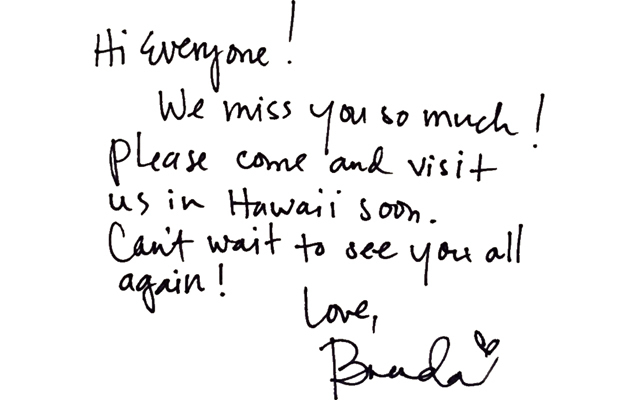 Hi Everyone!
We miss you so much!
Please come and visit
us in Hawaii soon.
Can't wait to see you all
again!
Love,
Brenda